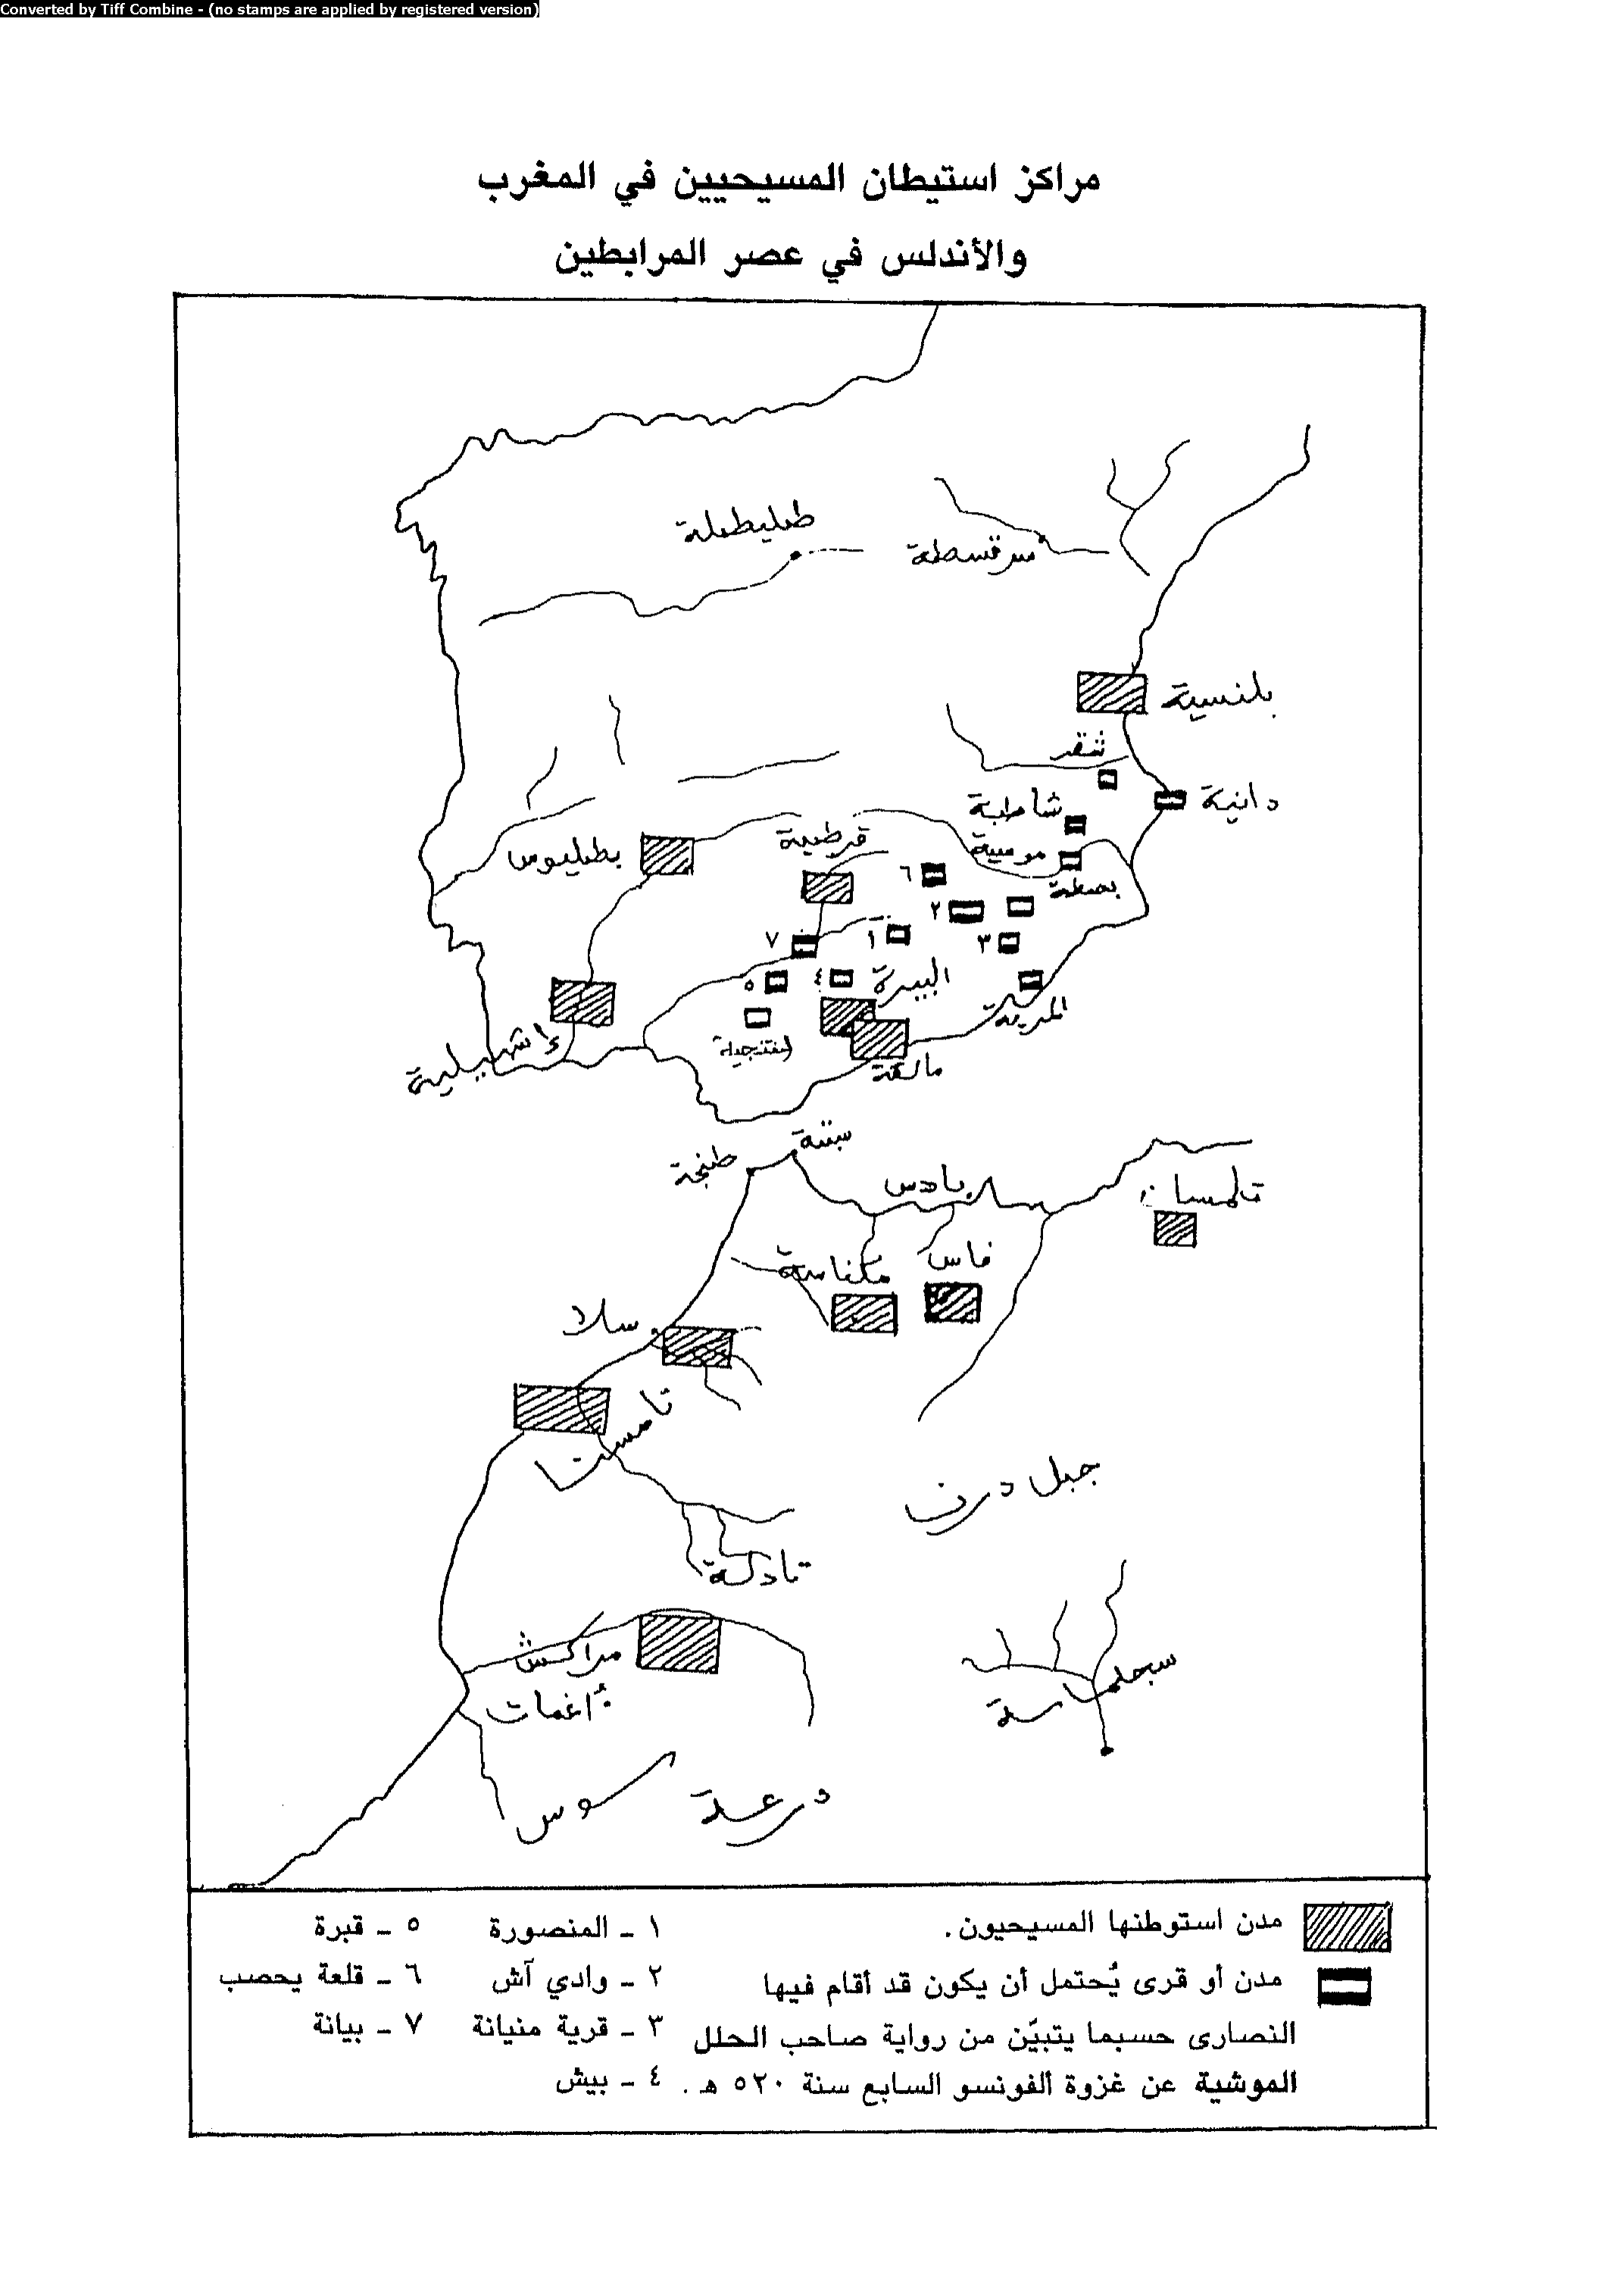 Converted by Tiff Combine - (no stamps are applied by registered version)
مراكز استيطان المسيحيين في المغرب
والأندلس في عصر المرابطين
طليطلة
سرقسطة
بلنسية
شقر
دانية
شاطبة
قرطبة
مرسية
بطليوس
٦
بسطة
٢
٧
١
٣
٥
٤
البيرة
المرية
إشبيلية
مالقة
سبتة
طنجة
بادس
تلمسان
فاس
مكناسة
سلا
تامسنا
جبل درن
تادلة
مراكش
سجلماسة
أغمات
درعة
سوس
مدن استوطنها المسيحيون.
مدن أو قرى يُحتمل أن يكون قد أقام فيها
النصارى حسبما يتبيّن من رواية صاحب الحلل
الموشية عن غزوة ألفونسو السابع سنة ٥٢٠ هـ.
١ - المنصورة
٢ - وادي آش
٣ - قرية منيانة
٤ - بيش
٥ - قبرة
٦ - قلعة يحصب
٧ - بيانة